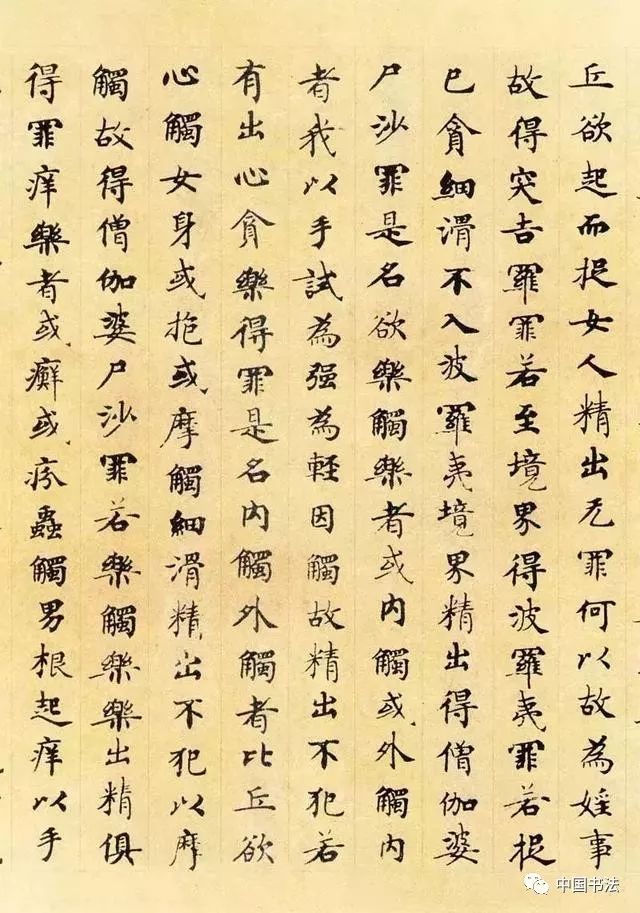 丘欲起而捉女人精出无罪何以故為婬事
故得突吉羅罪若至境界得波羅夷罪若捉
已貪細滑不入波羅夷境界精出得僧伽婆
尸沙罪是名欲樂觸樂者或内觸或外觸内
者我以手試為强為輕因觸故精出不犯若
有出心貪樂得罪是名内觸外觸者比丘欲
心觸女身或抱或摩觸細滑精出不犯以摩
觸故得僧伽婆尸沙罪若樂觸樂樂出精俱
得罪痒樂者或癬或疥蟲觸男根起痒以手
中国书法